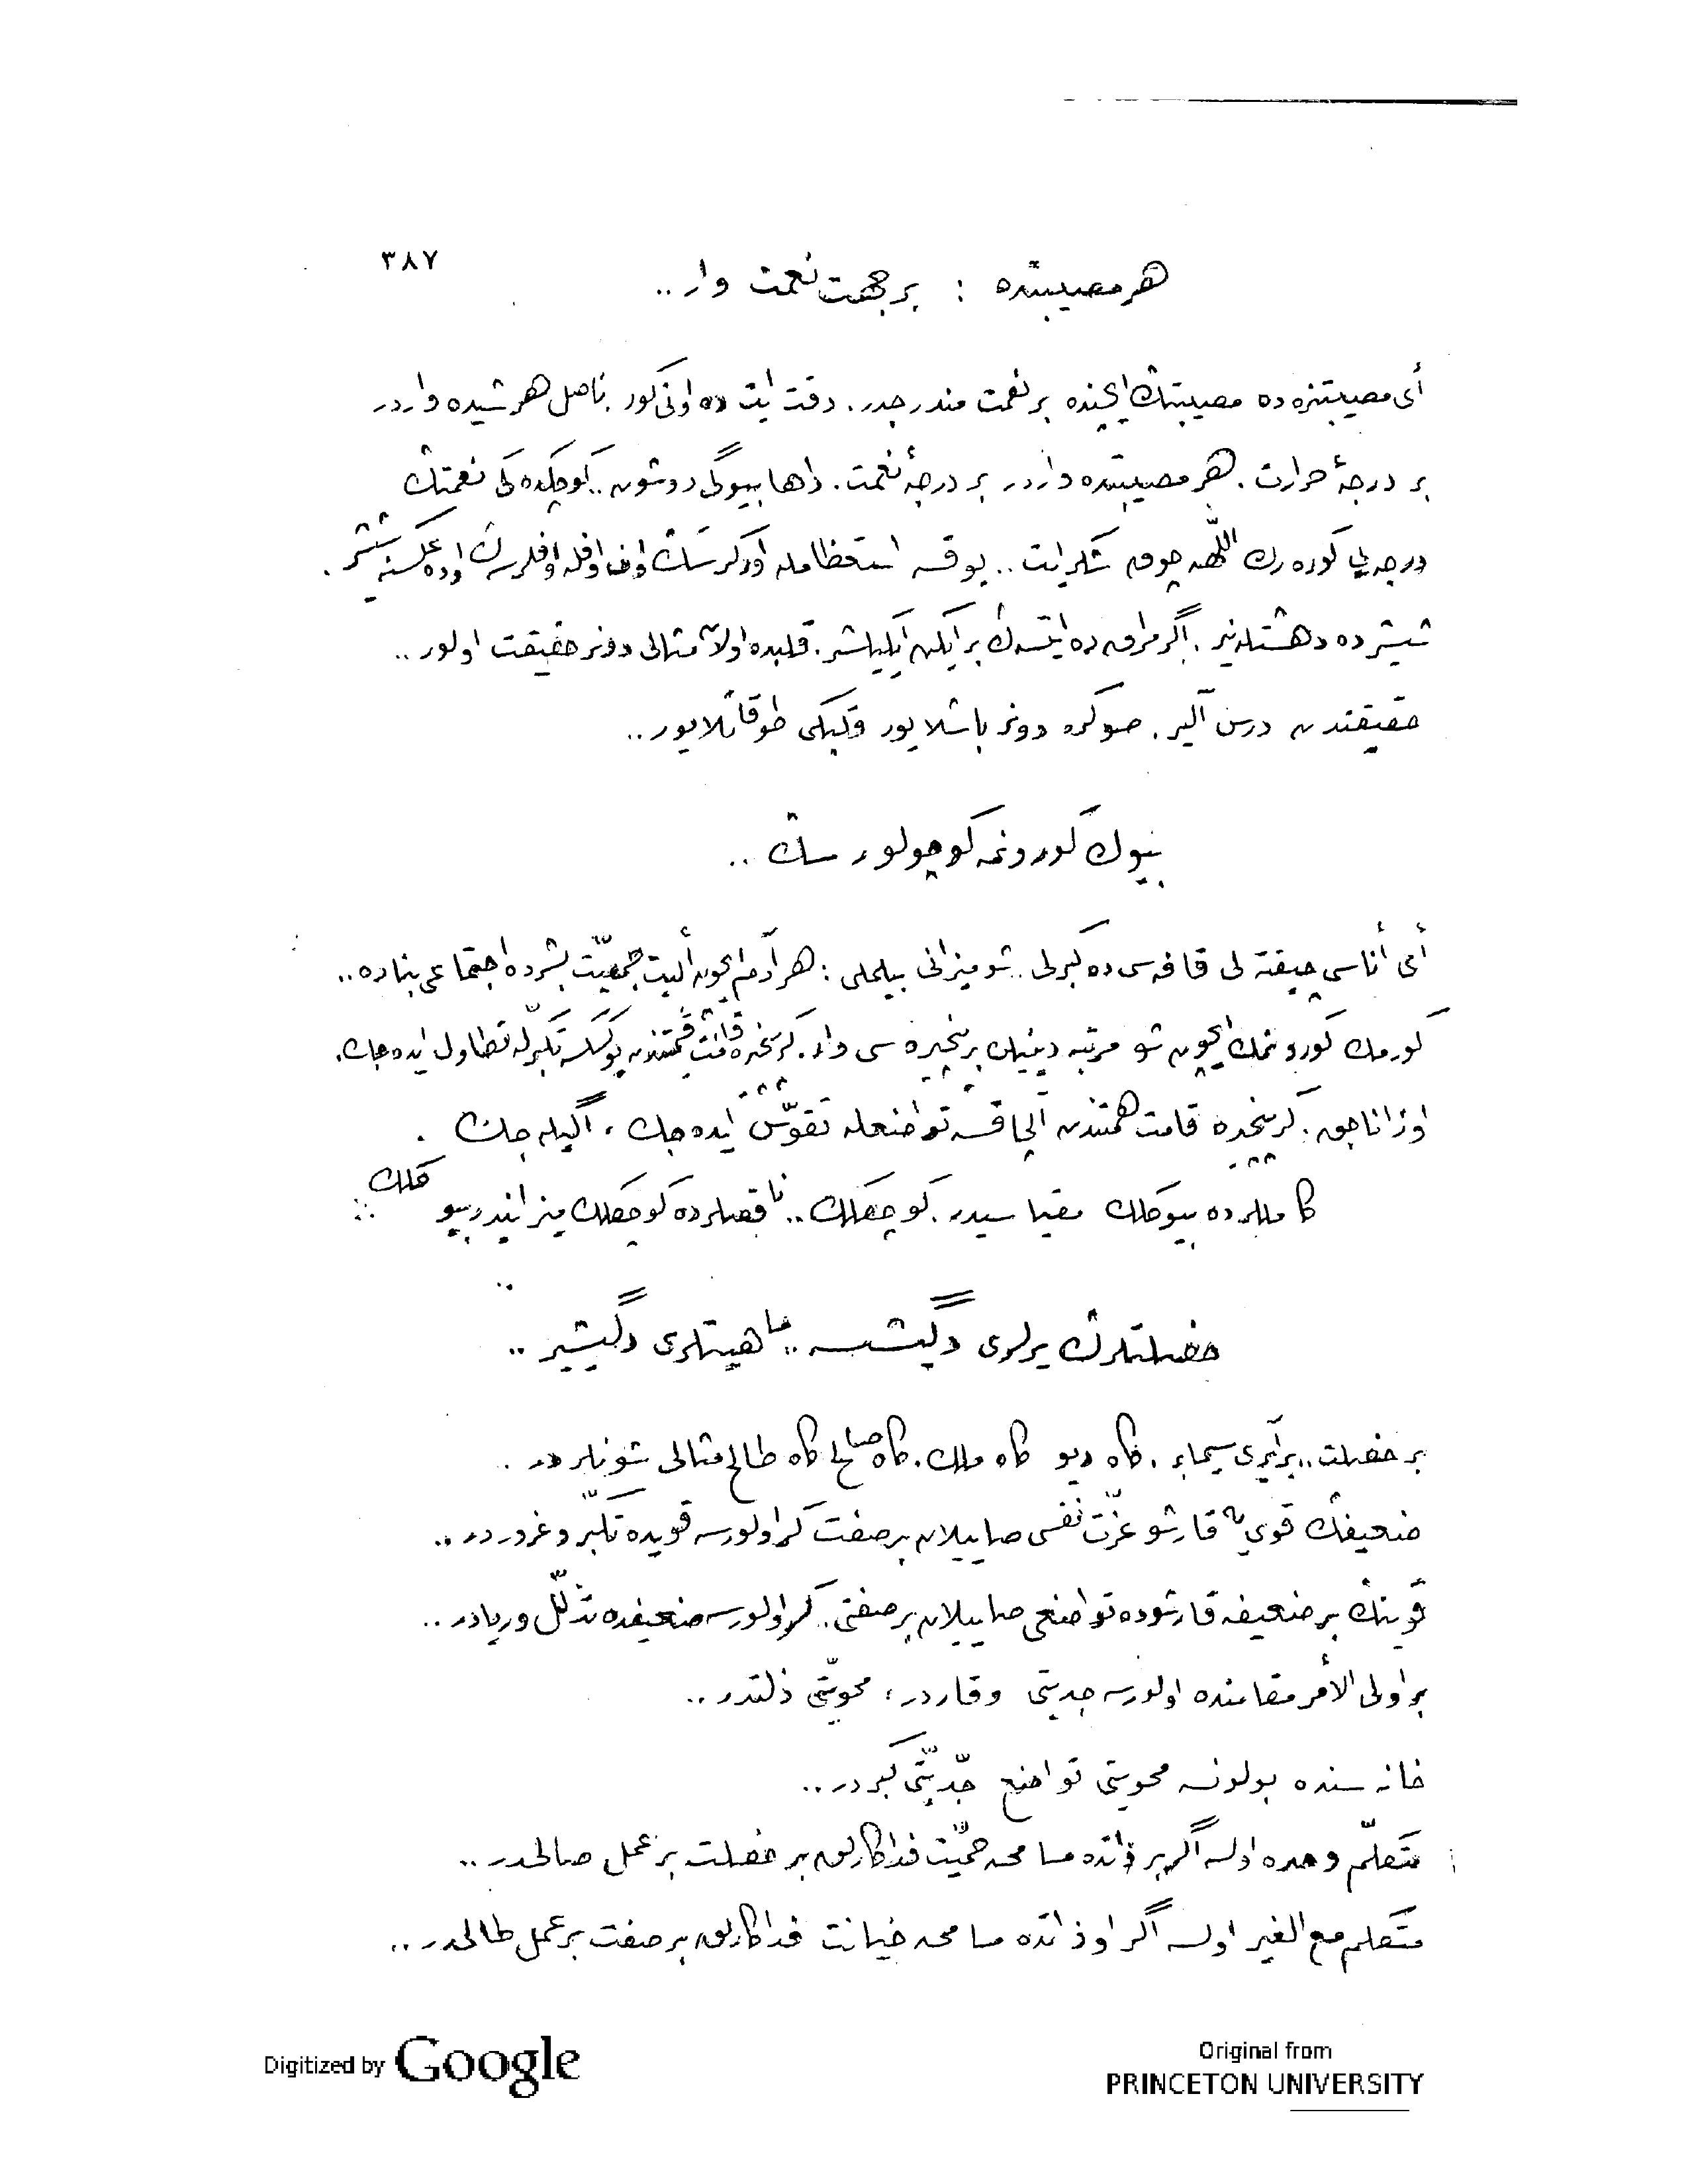 ٣٨٧
هر مصيبتده : بر جهت نعمت وار ..
أى مصيبتزده ده مصيبتڭ ايچنده بر نعمت مندرجدر . دقت ايت ده اونى كور . ناصل هر شيده واردر
بر درجهٔ حرارت . هر مصيبتده واردر بر درجهٔ نعمت . داها بيوگى دوشون .. كوچكده كى نعمتڭ
درجه يى كوره رك اللّهه چوق شكر ايت .. يوقسه استعظامله اوركرسڭ اوف اوفله اوفلرسڭ اوده عكسنه شيشر .
شيشر ده دهشتلنير . أگر مراق ده ايتسه ڭ بر ايكن ايكيلشير . قلبده اولان مثالى دونر حقيقت اولور ..
حقيقتدن درس آلير . صوكره دونر باشلايور قلبكى طوقاتلايور ..
بيوك كورونمه كوچولورسڭ ..
أى أناسى چيفته لى قافه سى ده كبرلى .. شو ميزانى بيلملى : هر آدم ايچون ألبت جمعيّت بشرده اجتماعى بناده ..
كورمك كورونمك ايچون شو مرتبه دينيلن بر پنجره سى وار . گر پنجره قامت قيمتندن يوكسكسه تكبّرله تطاول ايده جك .
اوزاناجق . گر پنجره قامت همتندن آلچاقسه تواضعله تقوّس ايده جك ، أگيله جك .
كاملرده بيوكلك مقياسيدر . كوچكلك .. ناقصلرده كوچكلك ميزانيدر بيوكلك ..
خصلتلرڭ يرلرى دگيشسه .. ماهيتلرى دگيشير ..
بر خصلت .. بر أيرى سيمابر . كاه ديو كاه ملك . كاه صالح كاه طالح مثالى شونلردر .
ضعيفڭ قوى يه قارشو عزّت نفسى صاييلان بر صفت گر اولورسه قويده تكبّر و غروردر ..
قوينڭ بر ضعيفه قارشوده تواضعى صاييلان بر صفتى . گر اولورسه ضعيفده تذلّل و ريادر ..
بر اولى الأمر مقامنده اولورسه جديتى وقاردر ، محويّتى ذلتدر ..
خانه سنده بولونسه محويتى تواضع جدّيّتى كبردر ..
متكلّم وحده اولسه أگر بر ذاتده مسامحه حميّت فداكارلق بر خصلت بر عمل صالحدر ..
متكلم مع الغير اولسه أگر او ذاتده مسامحه خيانت فداكارلق بر صفت بر عمل طالحدر ..
Digitized by Google
Original from
PRINCETON UNIVERSITY